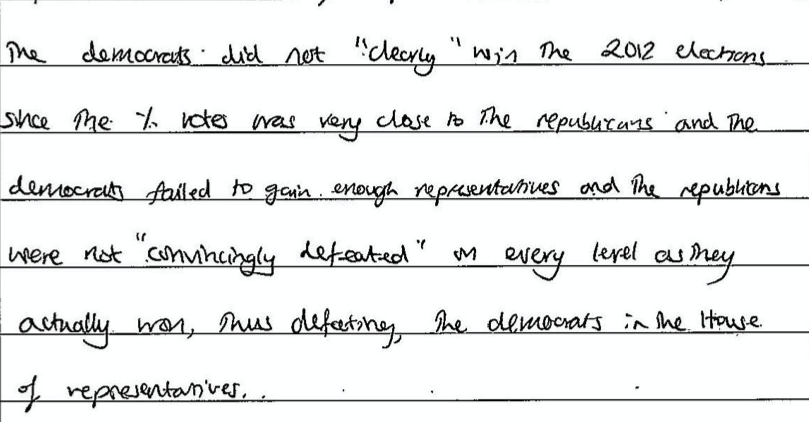 The democrats did not "clearly" win The 2012 elections
since The % votes was very close to The republicans and The
democrats failed to gain enough representatives and The republicans
were not "convincingly defeated" on every level as They
actually won, Thus defeating, The democrats in The House
of representatives.